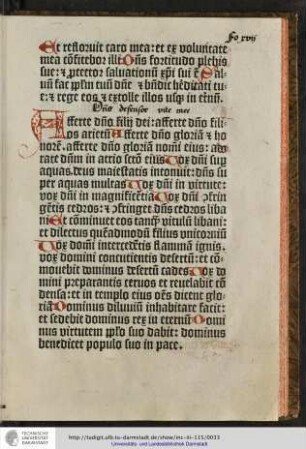 Fo xvij
Et refloruit caro mea: et ex voluntate
mea cōfitebor illi Dn̄s fortitudo plebis
sue: ⁊ ꝓtector saluationū xp̄i sui ē Sal
uū fac pplm̄ tuū dn̄e ⁊ bn̄dic hēditati tu
e: ⁊ rege eos ⁊ extolle illos usqꝫ in etnū.
Dn̄s defensor vite mee
Afferte dn̄o filij dei: afferte dn̄o fili
os arietū Afferte dn̄o gloriā ⁊ ho
norē. afferte dn̄o gloriā nomī eius: ado
rate dn̄m in atrio sct̄o eiꝰ Vox dn̄i suꝑ
aquas. deus maiestatis intonuit: dn̄s su
per aquas multas Vox dn̄i in virtute:
vox dn̄i in magnificētia Vox dn̄i ꝯfrin
gētis cedros: ⁊ ꝯfringet dn̄s cedros liba
ni Et cōminuet eos tanqͣ vitulū libani:
et dilectus quēadmodū filius vnicorniū
Vox domī intercedētis flammā ignis.
vox domini concutientis desertū: et cō
mouebit dominus desertū cades Vox do
mini preparantis ceruos et reuelabit cō
densa: et in templo eius oēs dicent glo
riā Dominus diluuiū inhabitare facit: et
et sedebit dominus rex in eternū Domi
nus virtutem pplo suo dabit: dominus
benedicet populo suo in pace.
TECHNISCHE
UNIVERSITÄT
DARMSTADT
http://tudigit.ulb.tu-darmstadt.de/show/inc-iii-115/0033
Universitäts- und Landesbibliothek Darmstadt